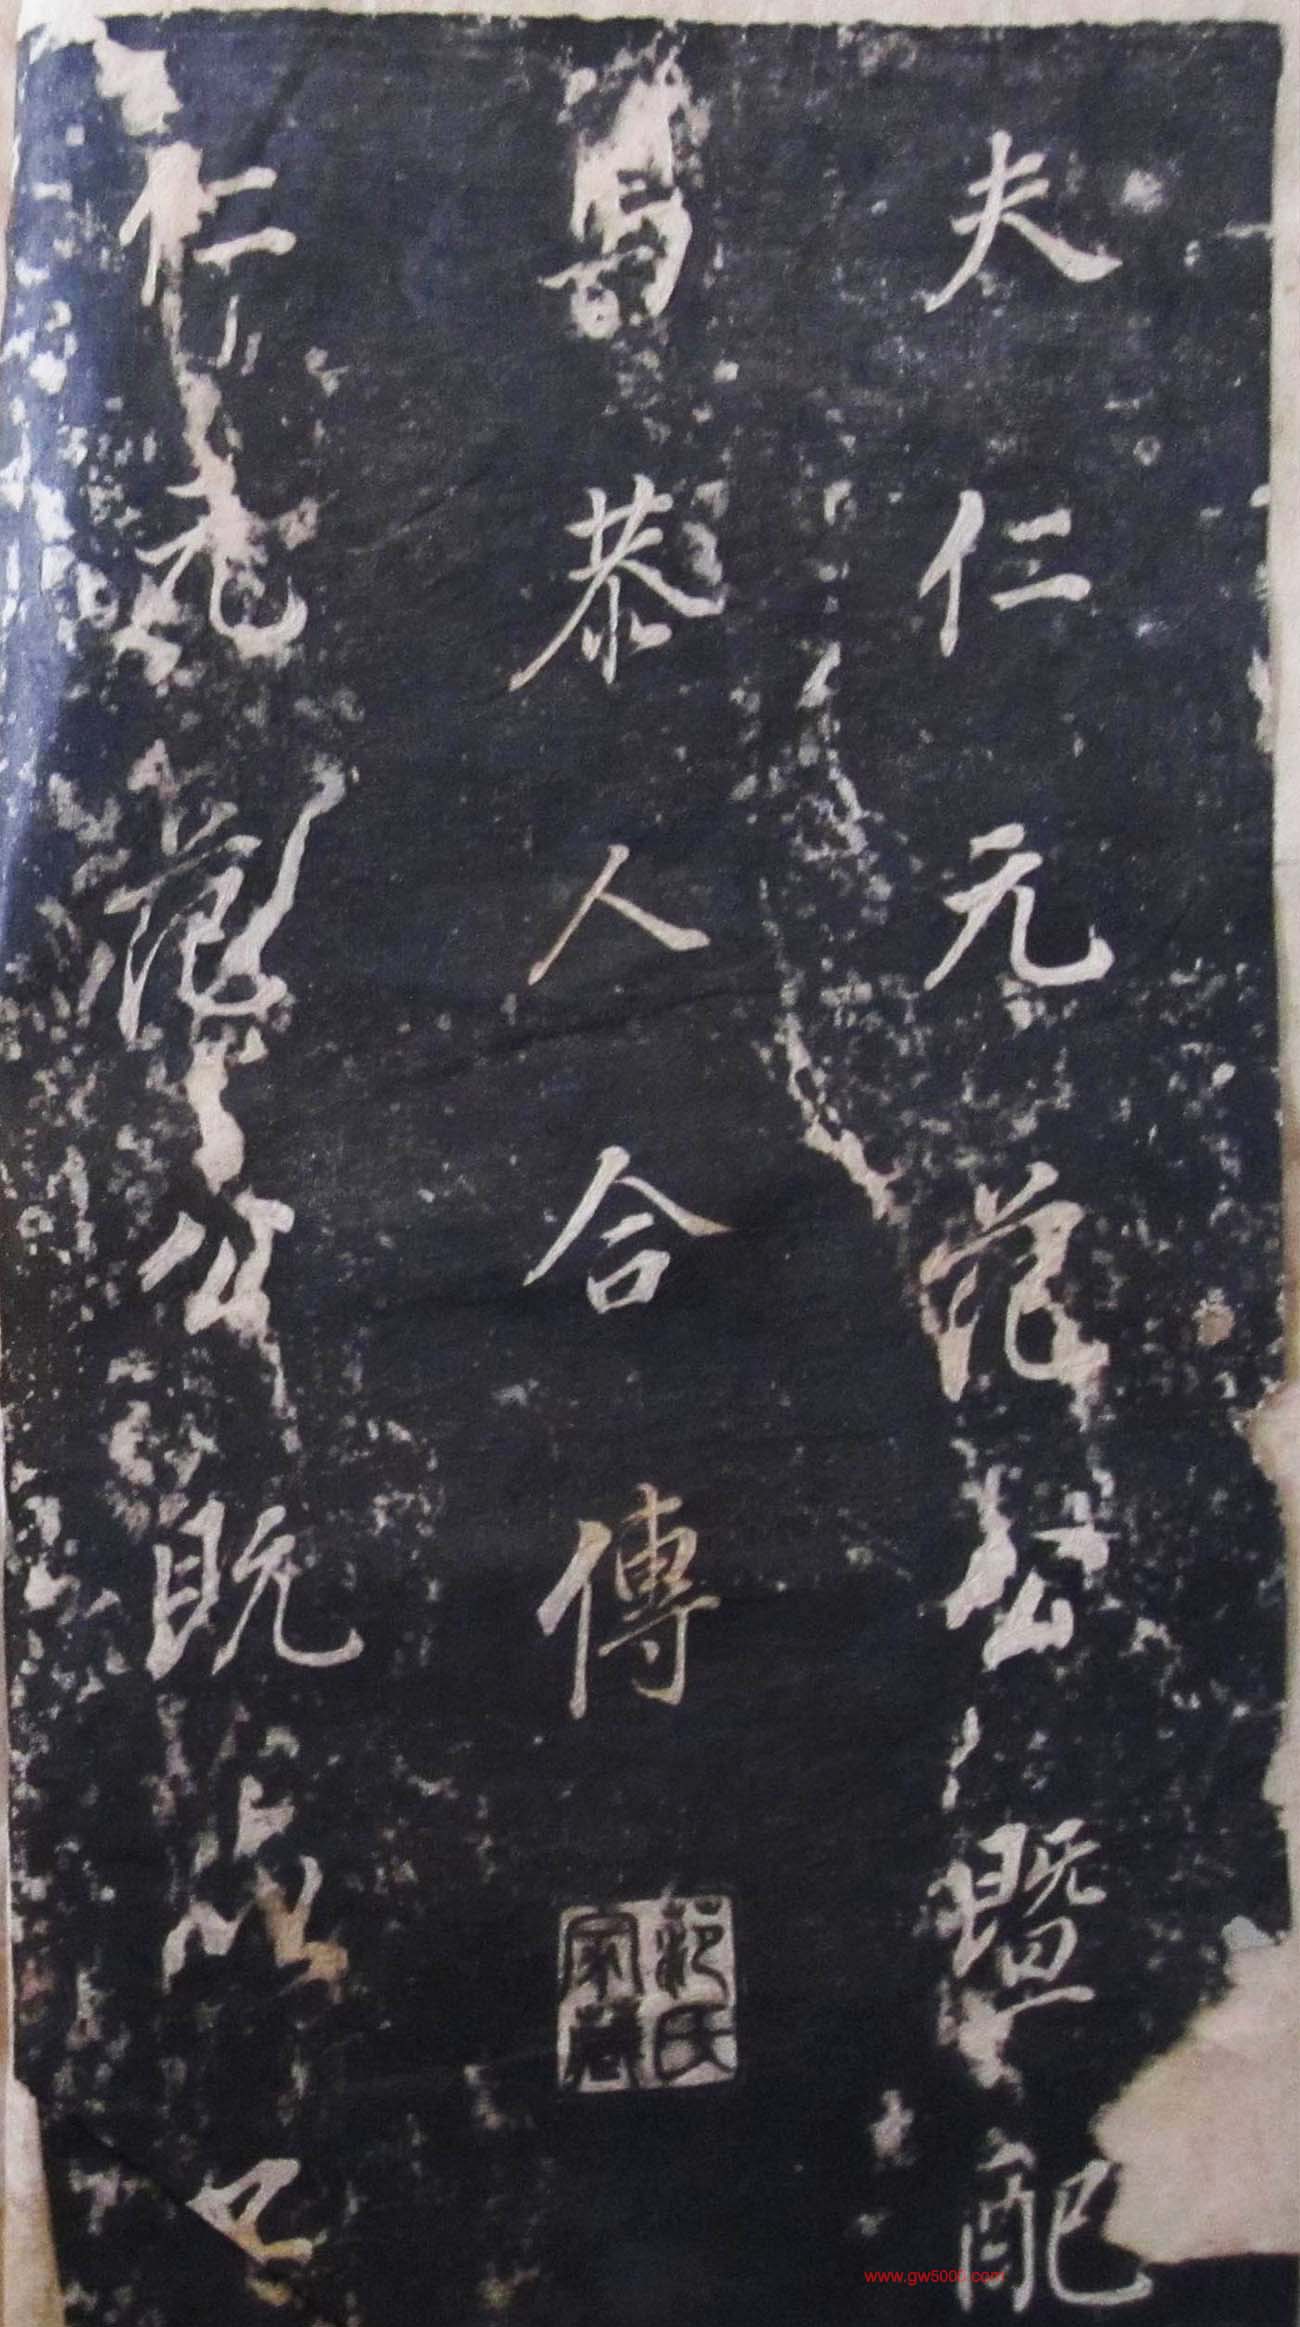 夫仁元范公暨配
馮恭人合傳
范氏家藏
仁元范公既
www.gw5000.com